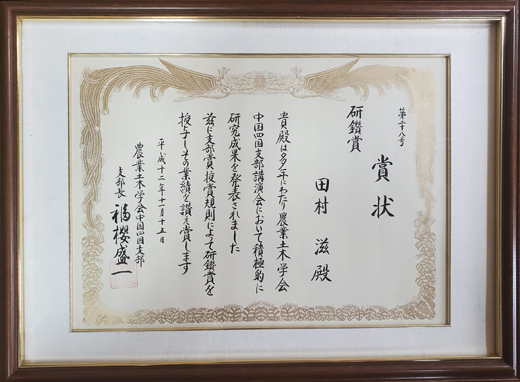 第二十八号
賞状
研鑽賞
田村 滋 殿
貴殿は多年にわたり農業土木学会
中国四国支部講演会において積極的に
研究成果を発表されました
玆に支部賞授賞規則によって研鑽賞を
授与しその業績を讃え賞します
平成十二年十一月十五日
農業土木学会中国四国支部
支部長 福櫻盛一